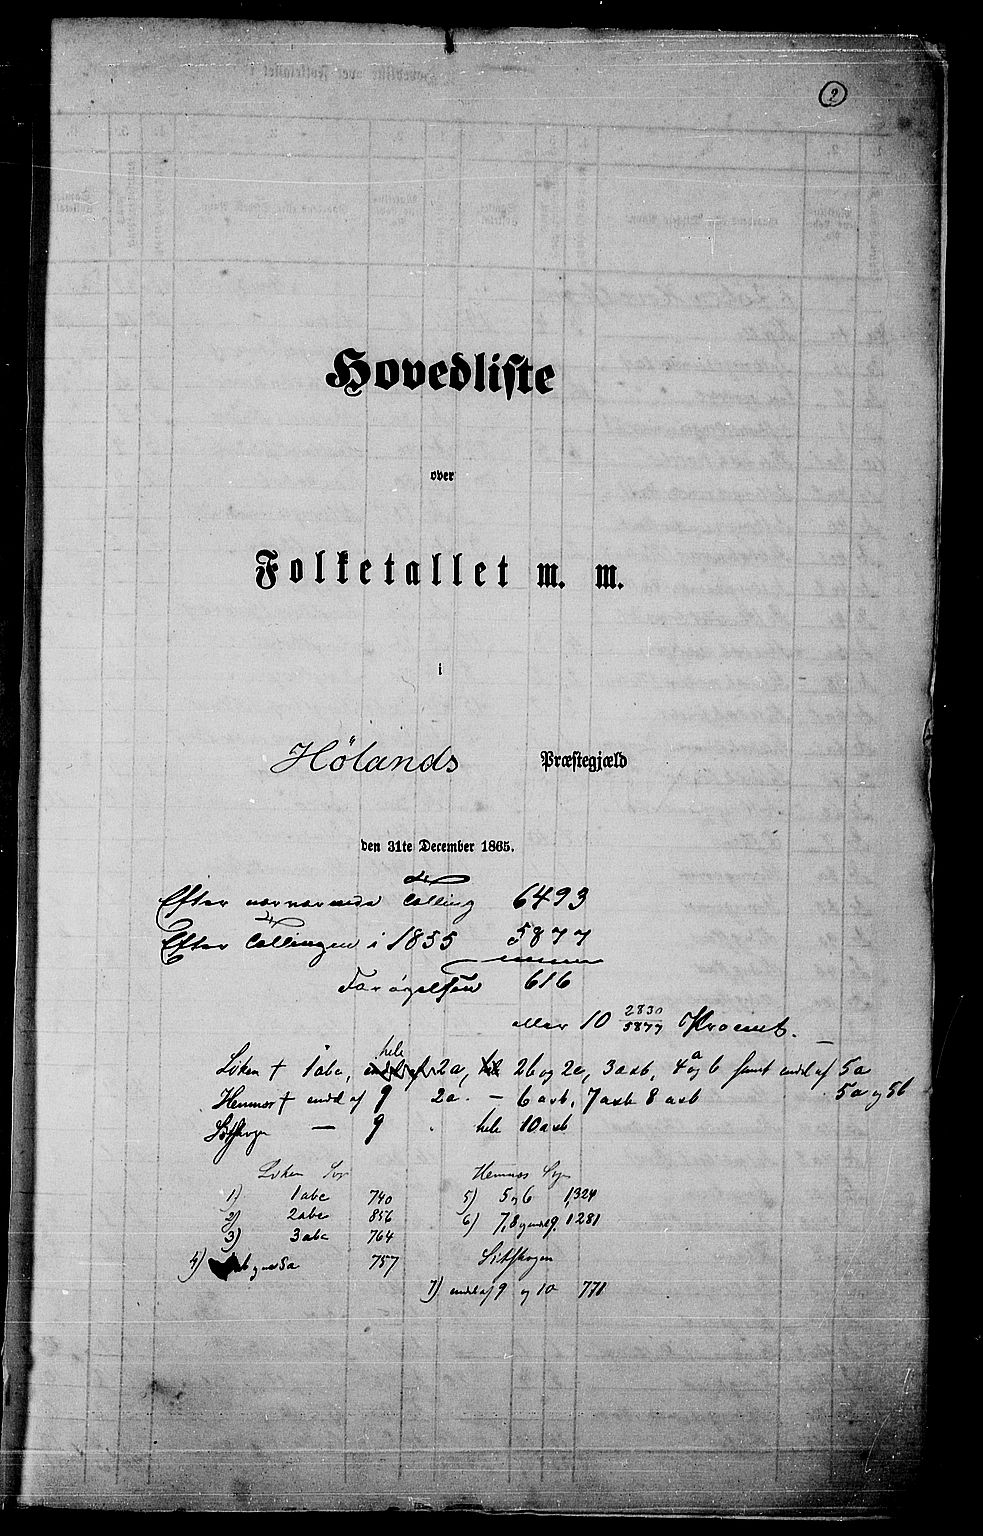 2
Hovedliste
over
Folketallet m. m.
i
Hølands Præstegjæld
den 31te December 1865.
Efter nærværende Tælling 6493
Efter Tællingen i 1855 5877
Forøgelsen 616
eller 10 2830/5877 Procent.
Løken + 1abc, hele 2a, 2b og 2c, 3aab, 4a og b samt endel af 5a
Hemnæs + endel af 9 2a. — 6 aab, 7aab 8 aab 5a og 5b
Sitskogen — 9 hele 10aab
Løken Sogn Hemnæs Sogn
1) 1abc 740 5) 5 og 6 1,324
2) 2abc 856 6) 7, 8 og endel 9. 1281
3) 3abc 764
Sitskogen
4) 5a 757
7) endel af 9 og 10 771